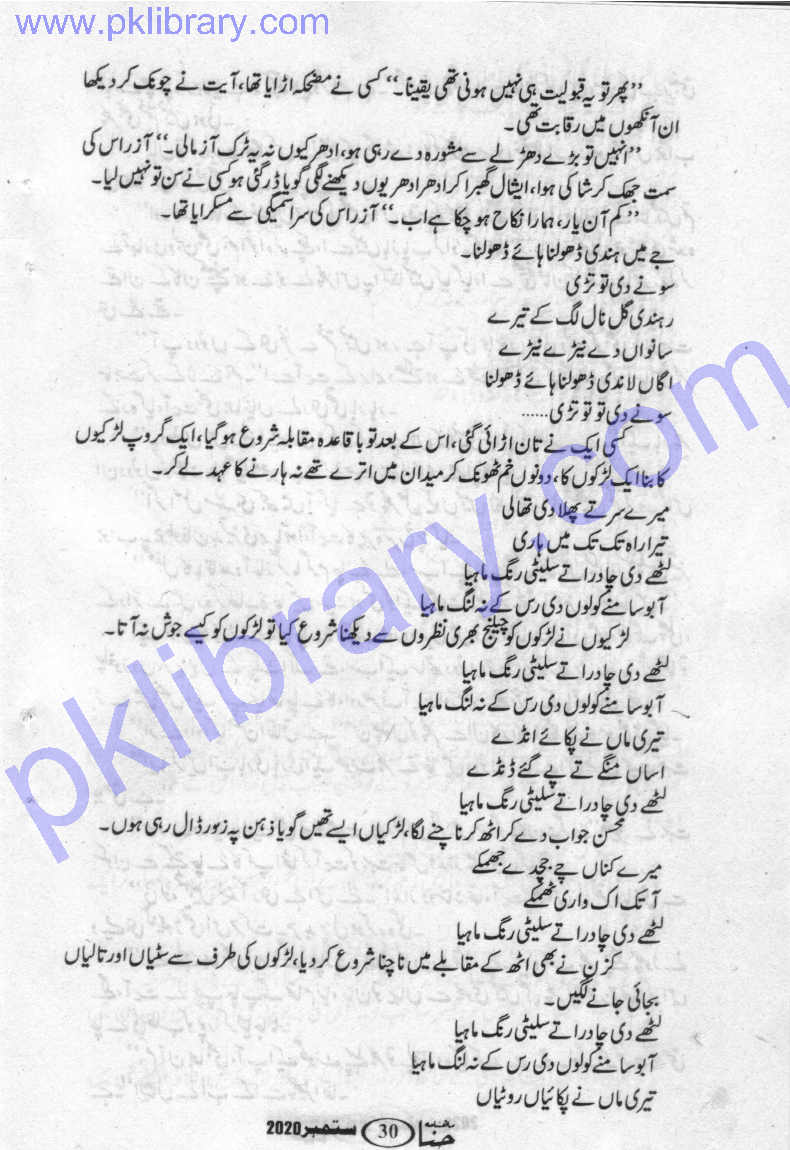 www.pklibrary.com
’’پھر تو یہ قبولیت ہی نہیں ہونی تھی یقیناً۔‘‘ کسی نے مضحکہ اڑایا تھا، آیت نے چونک کر دیکھا
ان آنکھوں میں رقابت تھی۔
’’انہیں تو بڑے دھڑلے سے مشورہ دے رہی ہو، ادھر کیوں نہ یہ ٹرک آزمالی۔‘‘ آزر اس کی
سمت جھک کر شاکی ہوا، ایشال گھبرا کر ادھر ادھر یوں دیکھنے لگی گویا ڈر گئی ہو کسی نے سن تو نہیں لیا۔
’’کم آن یار، ہمارا نکاح ہو چکا ہے اب۔‘‘ آزر اس کی سراسمیگی سے مسکرایا تھا۔
جے میں ہندی ڈھولنا ہائے ڈھولنا۔
سونے دی تو تڑی
رہندی گل نال لگ کے تیرے
سانواں دے نیڑے نیڑے
اگاں لاندی ڈھولنا ہائے ڈھولنا
سونے دی تو تو تڑی......
کسی ایک نے تان اڑائی گئی، اس کے بعد تو باقاعدہ مقابلہ شروع ہو گیا، ایک گروپ لڑکیوں
کا بنا ایک لڑکوں کا، دونوں خم ٹھونک کر میدان میں اترے تھے نہ ہارنے کا عہد لے کر۔
میرے سر تے پھلا دی تھالی
تیرا راہ تک تک میں ہاری
لٹھے دی چادر اتے سلیٹی رنگ ماہیا
آبو سامنے کولوں دی رس کے نہ لنگ ماہیا
لڑکیوں نے لڑکوں کو چیلنج بھری نظروں سے دیکھنا شروع کیا تو لڑکوں کو کیسے جوش نہ آتا۔
لٹھے دی چادر اتے سلیٹی رنگ ماہیا
آبو سامنے کولوں دی رس کے نہ لنگ ماہیا
تیری ماں نے پکائے انڈے
اساں منگے تے پے گئے ڈنڈے
لٹھے دی چادر اتے سلیٹی رنگ ماہیا
محسن جواب دے کر اٹھ کر ناچنے لگا، لڑکیاں ایسے تھیں گویا ذہن پہ زور ڈال رہی ہوں۔
میرے کناں چے جچدے جھمکے
آ تک اک واری ٹھمکے
لٹھے دی چادر اتے سلیٹی رنگ ماہیا
کزن نے بھی اٹھ کے مقابلے میں ناچنا شروع کر دیا، لڑکوں کی طرف سے سٹیاں اور تالیاں
بجائی جانے لگیں۔
لٹھے دی چادر اتے سلیٹی رنگ ماہیا
آبو سامنے کولوں دی رس کے نہ لنگ ماہیا
تیری ماں نے پکائیاں روٹیاں
حنا 30 ستمبر 2020
pklibrary.com